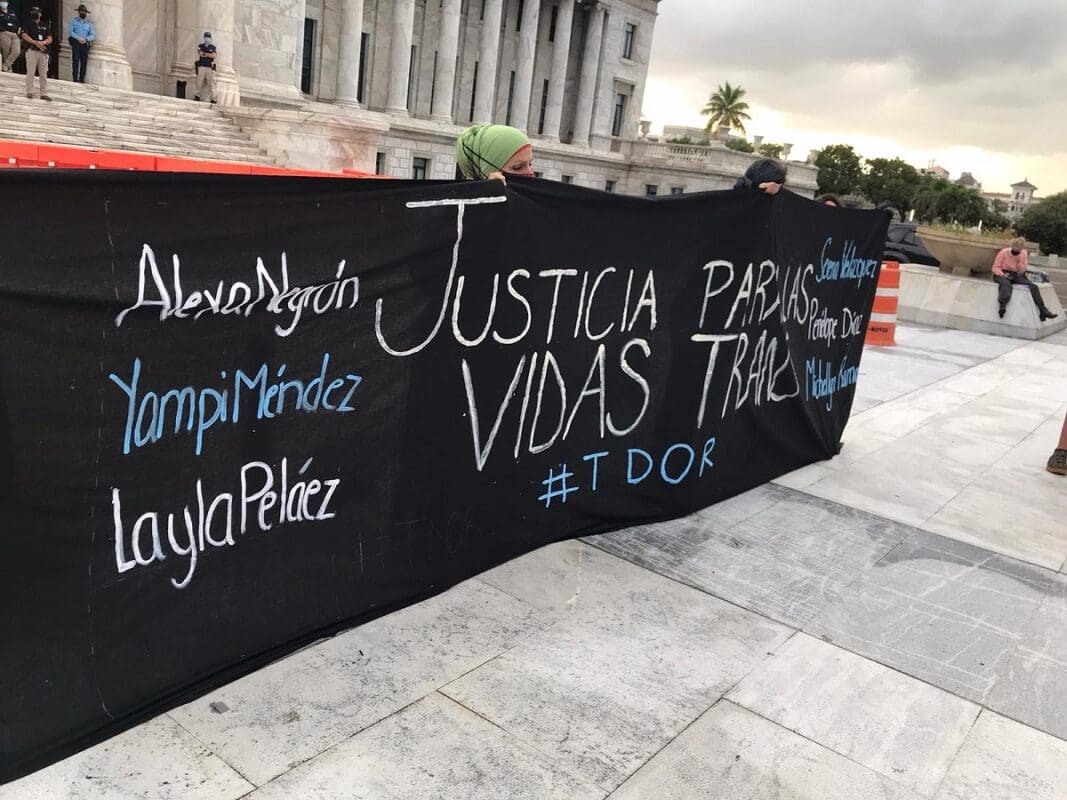 Alexa Negrón
Yampi Méndez
Layla Peláez
JUSTICIA PARA LAS
VIDAS TRANS
#TDOR
Velázquez
Penélope Díaz
Michellyn